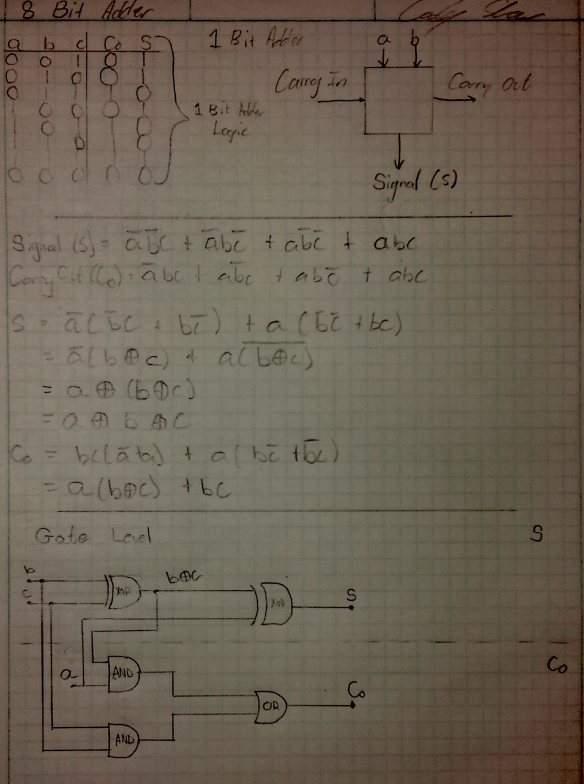 8 Bit Adder
a b c Co S
0 0 1 0 1
0 1 0 0 1
0 1 1 1 0
1 0 0 0 1
1 0 1 1 0
1 1 0 1 0
1 1 1 1 1
0 0 0 0 0
1 Bit Adder Logic
1 Bit Adder
a b
Carry In
Carry Out
Signal (S)
Signal (S) = a̅b̅c + a̅bc̅ + ab̅c̅ + abc
Carry Out (Co) = a̅bc + ab̅c + abc̅ + abc
S = a̅(b̅c + bc̅) + a(b̅c̅ + bc)
= a̅(b⊕c) + a(b̅⊕̅c̅)
= a ⊕ (b⊕c)
= a ⊕ b ⊕ c
Co = bc(a̅+a) + a(bc̅ + b̅c)
= a(b⊕c) + bc
Gate Level
S
b
c
XOR
b⊕c
XOR
S
Co
a
AND
OR
Co
AND